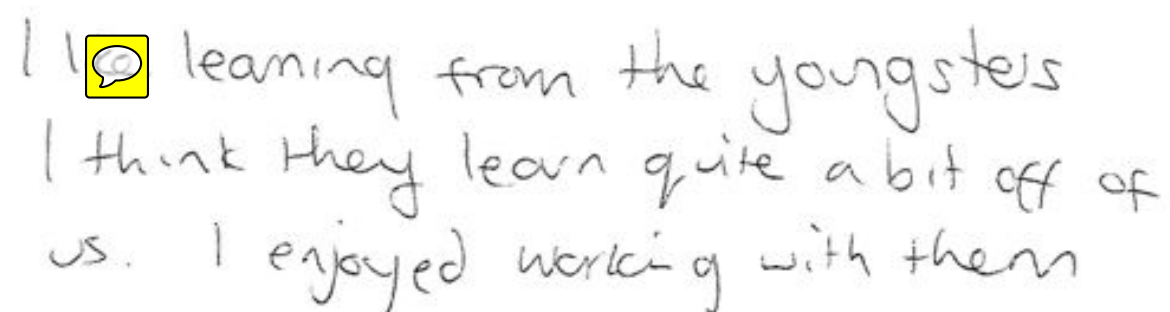 I leaning from the youngsters
I think they learn quite a bit off of
us. I enjoyed working with them